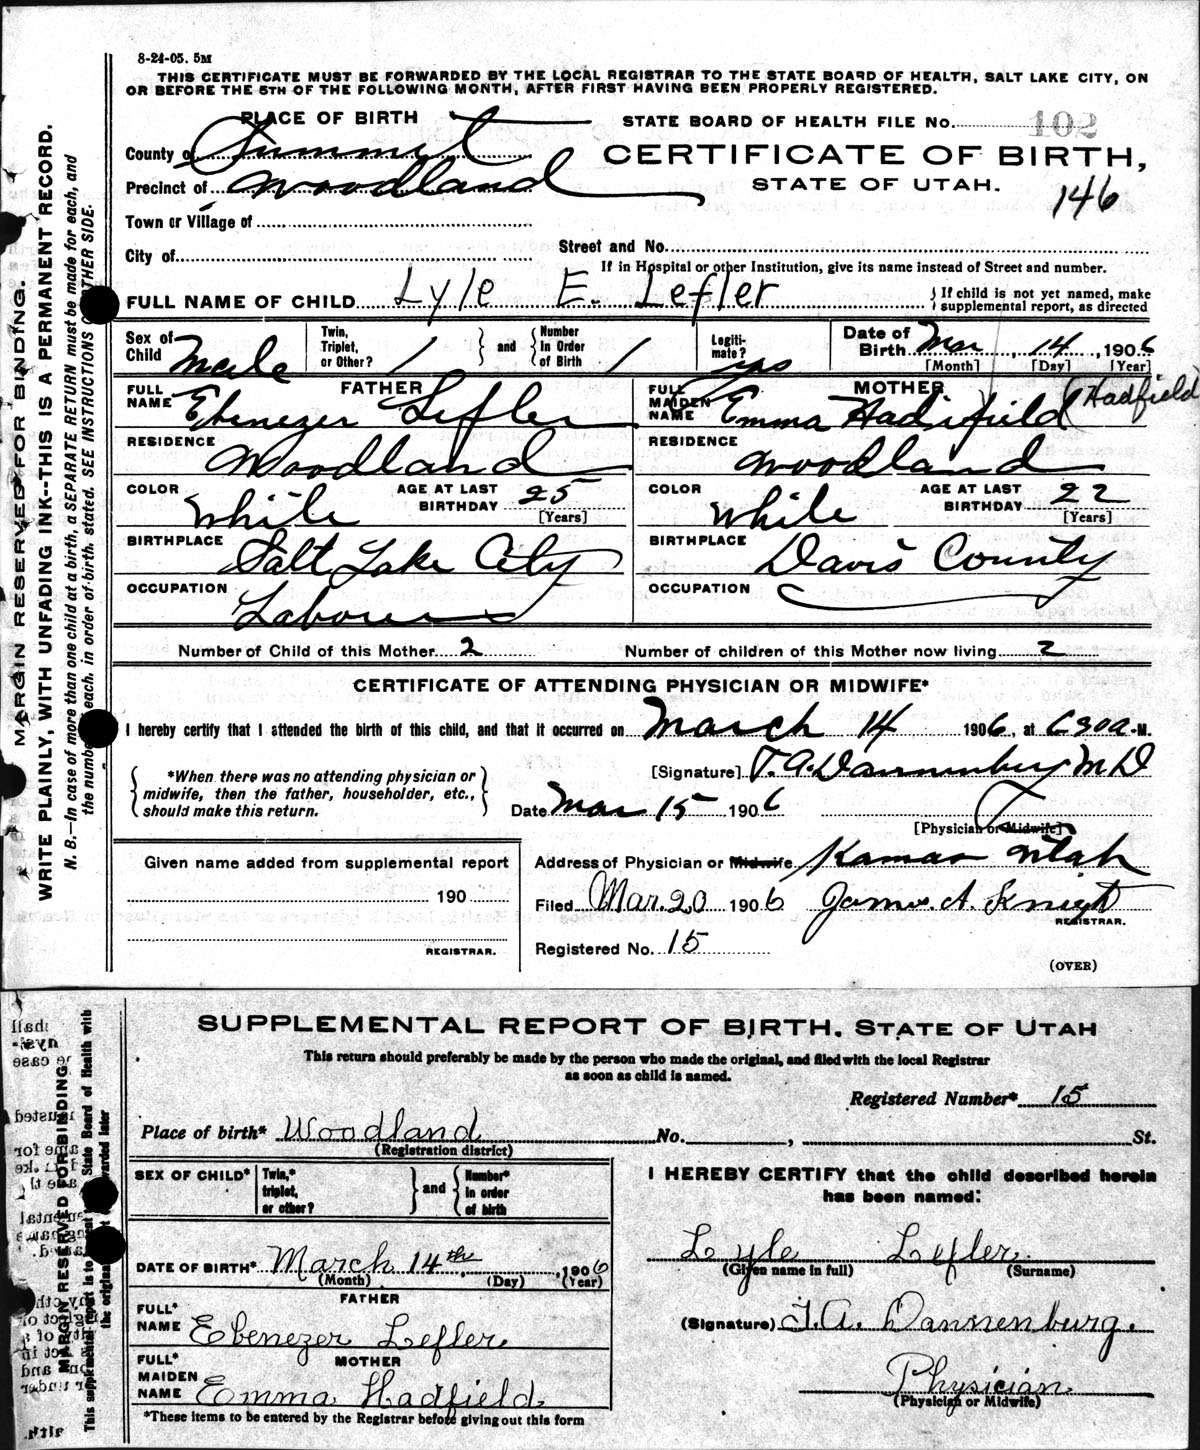 8-24-05. 5M
THIS CERTIFICATE MUST BE FORWARDED BY THE LOCAL REGISTRAR TO THE STATE BOARD OF HEALTH, SALT LAKE CITY, ON
OR BEFORE THE 5TH OF THE FOLLOWING MONTH, AFTER FIRST HAVING BEEN PROPERLY REGISTERED.
PLACE OF BIRTH
STATE BOARD OF HEALTH FILE No. 102
County of Summit
CERTIFICATE OF BIRTH,
Precinct of Woodland
STATE OF UTAH.
146
Town or Village of
City of
Street and No.
If in Hospital or other Institution, give its name instead of Street and number.
FULL NAME OF CHILD Lyle E. Lefler
If child is not yet named, make supplemental report, as directed
Sex of Child Male
Twin, Triplet, or Other? / and Number In Order of Birth /
Legitimate? yes
Date of Birth Mar, 14, 1906
[Month] [Day] [Year]
FATHER
FULL NAME Ebenezer Lefler
MOTHER
FULL MAIDEN NAME Emma Hadifield (Hadfield)
RESIDENCE Woodland
RESIDENCE Woodland
COLOR White AGE AT LAST BIRTHDAY 25 [Years]
COLOR White AGE AT LAST BIRTHDAY 22 [Years]
BIRTHPLACE Salt Lake City
BIRTHPLACE Davis County
OCCUPATION Laborer
OCCUPATION
Number of Child of this Mother 2
Number of children of this Mother now living 2
CERTIFICATE OF ATTENDING PHYSICIAN OR MIDWIFE*
I hereby certify that I attended the birth of this child, and that it occurred on March 14 1906, at 630 a.M.
*When there was no attending physician or
midwife, then the father, householder, etc.,
should make this return.
[Signature] T. A. Dannenburg M D
Date Mar 15 1906
[Physician or Midwife]
Given name added from supplemental report
190
REGISTRAR.
Address of Physician or Midwife Kamas Utah
Filed Mar. 20 1906 James A. Knight
REGISTRAR.
Registered No. 15
(OVER)
MARGIN RESERVED FOR BINDING.
WRITE PLAINLY, WITH UNFADING INK--THIS IS A PERMANENT RECORD.
N. B.—In case of more than one child at a birth, a SEPARATE RETURN must be made for each, and
the number each, in order of birth, stated. SEE INSTRUCTIONS OTHER SIDE.
SUPPLEMENTAL REPORT OF BIRTH, STATE OF UTAH
This return should preferably be made by the person who made the original, and filed with the local Registrar
as soon as child is named.
Registered Number* 15
Place of birth* Woodland No. , St.
(Registration district)
SEX OF CHILD*
Twin,* triplet, or other? and Number* in order of birth
DATE OF BIRTH* March 14th, 1906
(Month) (Day) (Year)
FATHER
FULL* NAME Ebenezer Lefler
MOTHER
FULL* MAIDEN NAME Emma Hadfield
*These items to be entered by the Registrar before giving out this form
I HEREBY CERTIFY that the child described herein
has been named:
Lyle Lefler.
(Given name in full) (Surname)
(Signature) T. A. Dannenburg.
Physician
(Physician or Midwife)
MARGIN RESERVED FOR BINDING.
This supplemental report is to State Board of Health with
the original